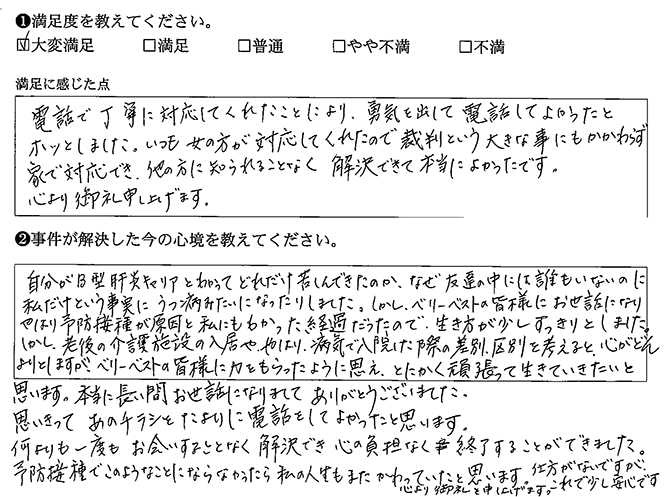 ❶満足度を教えてください。
☑大変満足 □満足 □普通 □やや不満 □不満
満足に感じた点
電話で丁寧に対応してくれたことにより、勇気を出して電話してよかったと
ホッとしました。いつも女の方が対応してくれたので裁判という大きな事にもかかわらず
家で対応でき、他の方に知られることなく解決できて本当によかったです。
心より御礼申し上げます。
❷事件が解決した今の心境を教えてください。
自分がB型肝炎キャリアとわかってどれだけ苦しんできたのか、なぜ友達の中には誰もいないのに
私だけという事実にうつ病みたいになったりしました。しかし、ベリーベストの皆様にお世話になり
やはり予防接種が原因と私にもわかった経過だったので、生き方が少しすっきりとしました。
しかし、老後の介護施設の入居や、やはり、病気で入院した際の差別、区別を考えると、心がどんより
としますがベリーベストの皆様に力をもらったように思え、とにかく頑張って生きていきたいと
思います。本当に長い間お世話になりましてありがとうございました。
思いきってあのチラシをたよりに電話をしてよかったと思います。
何よりも一度もお会いすることなく解決でき心の負担なく終了することができました。
予防接種でこのようなことにならなかったら私の人生もまたかわっていたと思います。仕方がないですが、
心より御礼を申し上げます。これで少し安心です